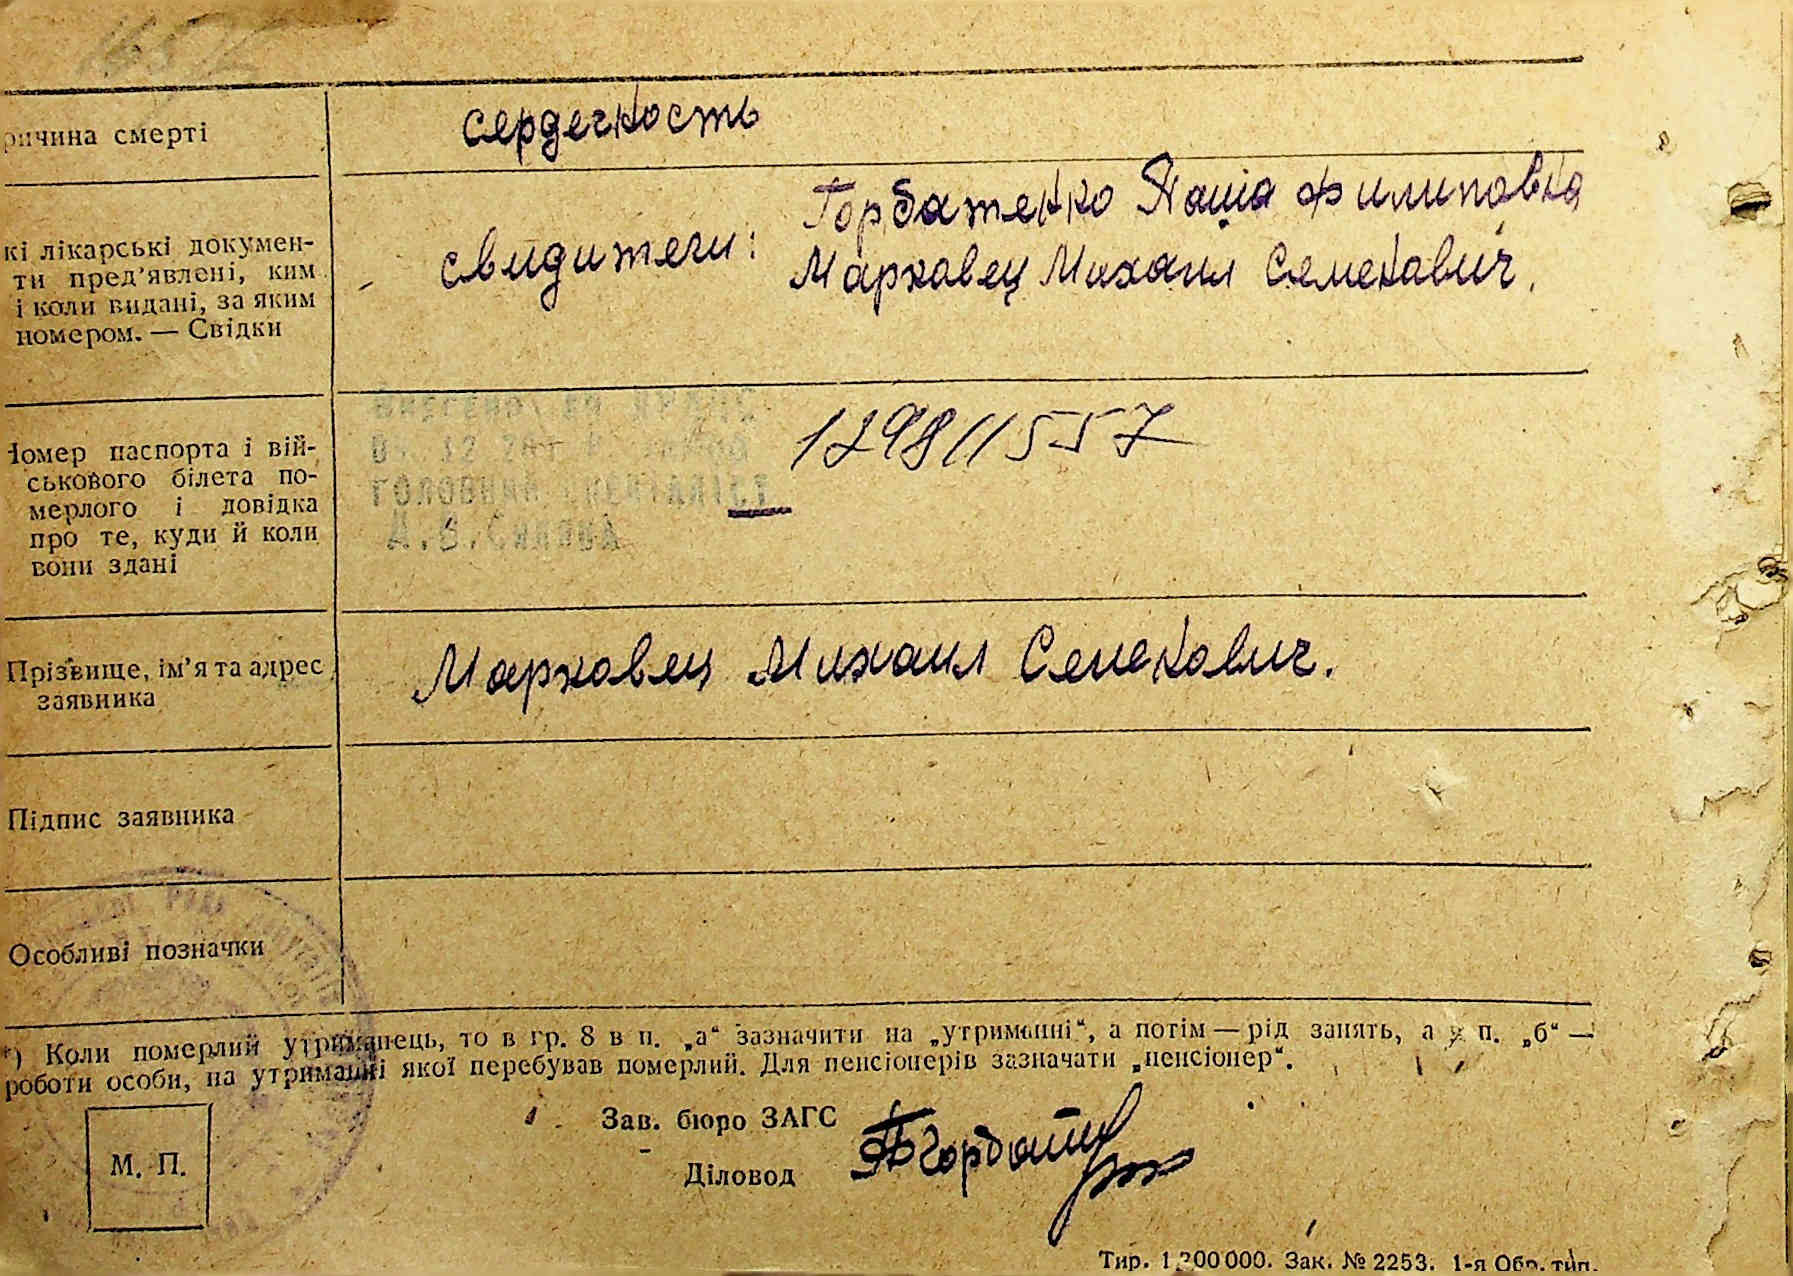 ричина смерті
сердечность
кі лікарські докумен-
ти пред'явлені, ким
і коли видані, за яким
номером. — Свідки
свидители:
Горбатенко Паша Филиповна
Марховец Михаил Семенович.
Номер паспорта і вій-
ськового білета по-
мерлого і довідка
про те, куди й коли
вони здані
ГОЛОВНИЙ СПЕЦІАЛІСТ
1298/1557
Прізвище, ім'я та адрес
заявника
Марховец Михаил Семенович.
Підпис заявника
Особливі позначки
*) Коли померлий утриманець, то в гр. 8 в п. „а“ зазначити на „утриманні“, а потім — рід занять, а у п. „б“ —
роботи особи, на утриманні якої перебував померлий. Для пенсіонерів зазначати „пенсіонер“.
Зав. бюро ЗАГС
М. П.
Діловод
Тир. 1.200 000. Зак. № 2253. 1-я Обр. тип.